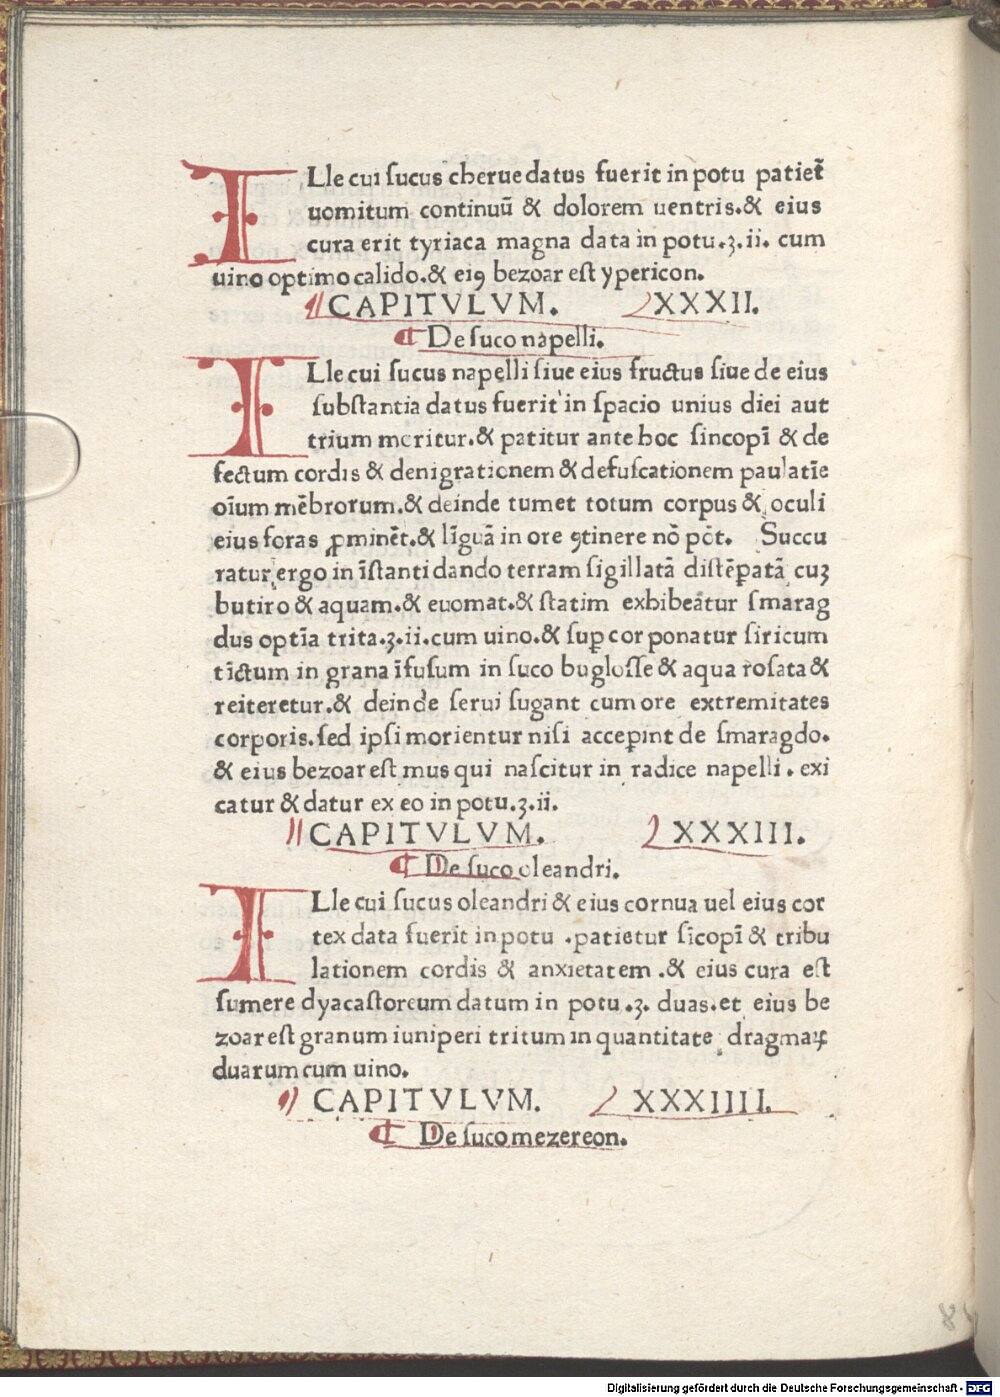 ILle cui sucus cherue datus fuerit in potu patiet᷑
uomitum continuū & dolorem uentris.& eius
cura erit tyriaca magna data in potu.ʒ.ii. cum
uino optimo calido.& eiꝰ bezoar est ypericon.
CAPITVLVM. XXXII.
De suco napelli.
ILle cui sucus napelli siue eius fructus siue de eius
substantia datus fuerit in spacio unius diei aut
trium moritur.& patitur ante hoc sincopī & de
fectum cordis & denigrationem & defuscationem paulatīe
oīum mēbrorum.& deinde tumet totum corpus & oculi
eius foras ꝓminēt.& līguā in ore ꝯtinere nō pōt. Succu
ratur ergo in īstanti dando terram sigillatā distēpatā cuꝫ
butiro & aquam.& euomat.& statim exhibeatur smarag
dus optīa trita.ʒ.ii.cum uino.& suꝑ cor ponatur siricum
tīctum in grana īfusum in suco buglosse & aqua rosata &
reiteretur.& deinde serui sugant cum ore extremitates
corporis.sed ipsi morientur nisi acceꝑint de smaragdo.
& eius bezoar est mus qui nascitur in radice napelli . exi
catur & datur ex eo in potu.ʒ.ii.
CAPITVLVM. XXXIII.
De suco oleandri.
ILle cui sucus oleandri & eius cornua uel eius cor
tex data fuerit in potu .patietur sīcopī & tribu
lationem cordis & anxietatem .& eius cura est
sumere dyacastoreum datum in potu .ʒ. duas.et eius be
zoar est granum iuniperi tritum in quantitate dragmaꝝ
duarum cum uino.
CAPITVLVM. XXXIIII.
De suco mezereon.
Digitalisierung gefördert durch die Deutsche Forschungsgemeinschaft - DFG